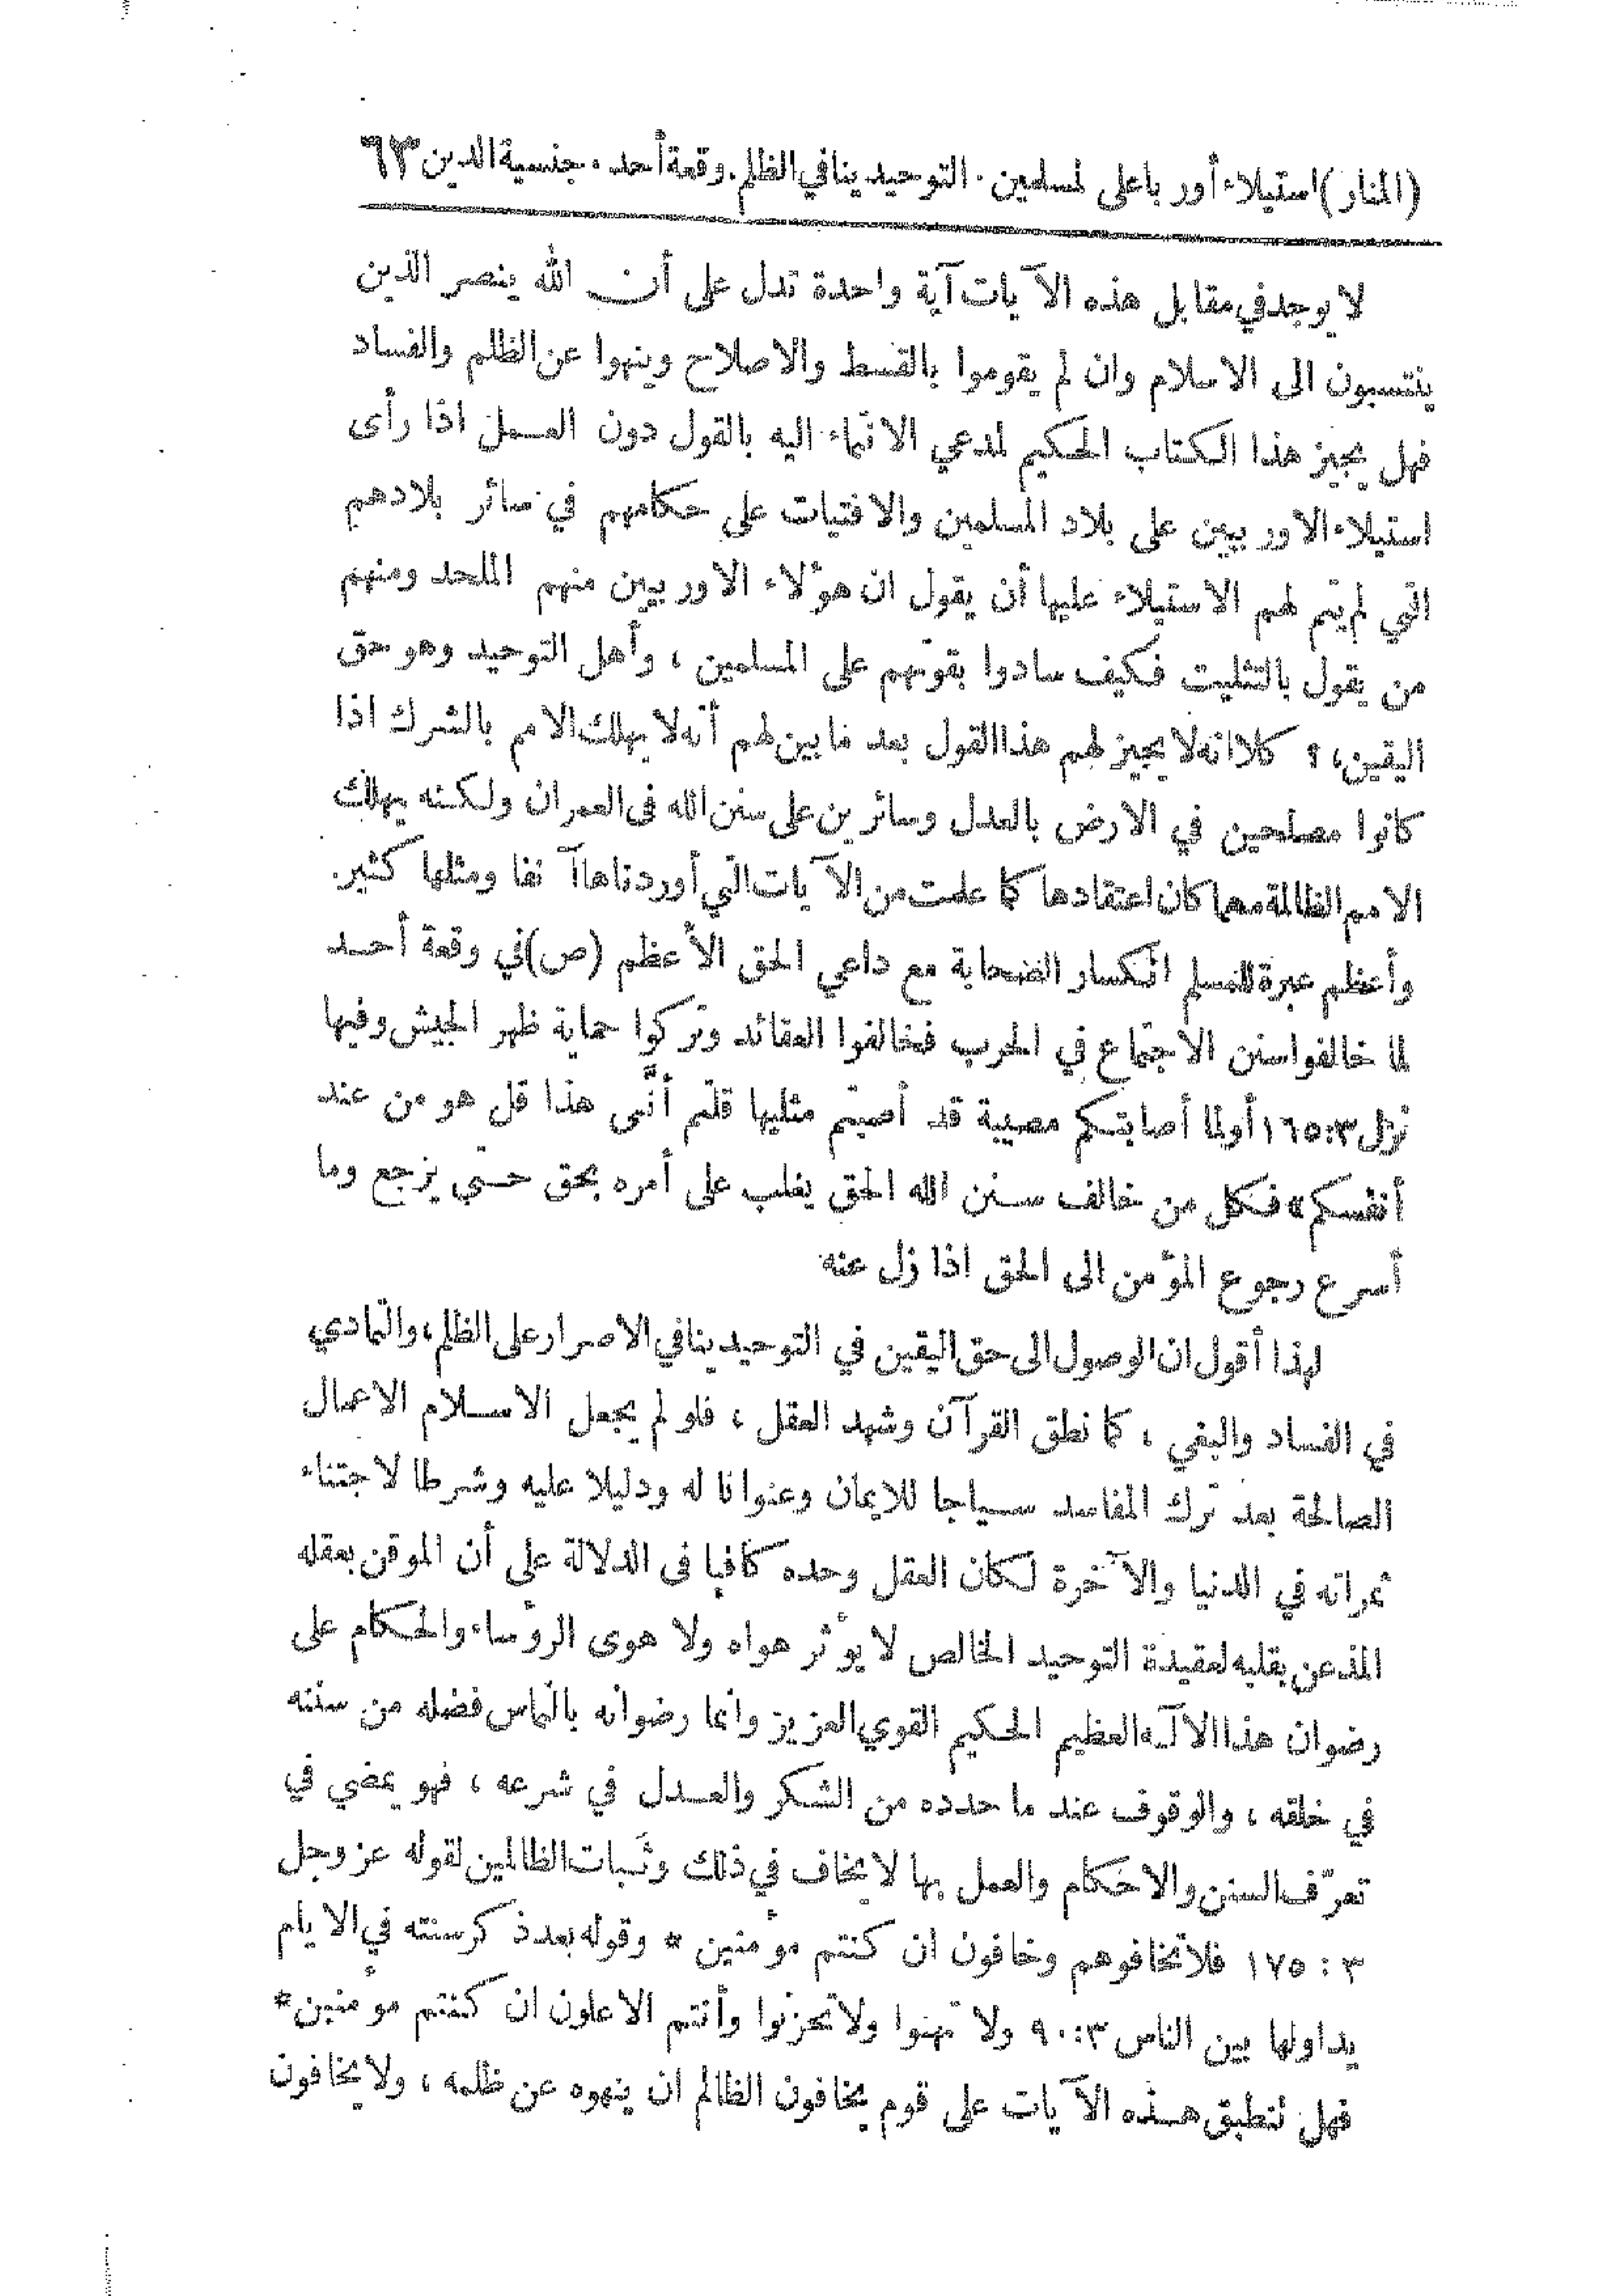 (المنار) استيلاء أوربا على لمسلمين . التوحيد ينافي الظلم . وقعة أحد . جنسية الدين ٦٣
لا يوجد في مقابل هذه الآيات آية واحدة تدل على أن الله ينصر الذين
ينتسبون الى الاسلام وان لم يقوموا بالقسط والاصلاح وينهوا عن الظلم والفساد
فهل يجيز هذا الكتاب الحكيم لمدعي الانتماء اليه بالقول دون العمل اذا رأى
استيلاء الاوربيين على بلاد المسلمين والافتيات على حكامهم في سائر بلادهم
التي لم يتم لهم الاستيلاء عليها أن يقول ان هؤلاء الاوربيين منهم الملحد ومنهم
من يقول بالتثليت فكيف سادوا بقوتهم على المسلمين ، وأهل التوحيد وهو حق
اليقين، ؟ كلا انه لا يجيز لهم هذا القول بعد ما بين لهم أنه لا يهلك الامم بالشرك اذا
كانوا مصلحين في الارض بالعدل وسائرين على سنن الله في العمران ولكنه يهلك
الامم الظالمة مهما كان اعتقادها كما علمت من الآيات التي أوردناها آنفا ومثلها كثير.
وأعظم عبرة للمسلم انكسار الصحابة مع داعي الحق الأعظم (ص) في وقعة أحد
لما خالفوا سنن الاجتماع في الحرب فخالفوا القائد وتركوا حماية ظهر الجيش وفيها
نزل ٣:١٦٥ أولما أصابتكم مصيبة قد أصبتم مثليها قلتم أنَّى هذا قل هو من عند
أنفسكم * فكل من خالف سنن الله الحق يغلب على أمره بحق حتى يرجع وما
أسرع رجوع المؤمن الى الحق اذا زل عنه
لهذا أقول ان الوصول الى حق اليقين في التوحيد ينافي الاصرار على الظلم، والتمادي
في الفساد والبغي ، كما نطق القرآن وشهد العقل ، فلو لم يجعل الاسلام الاعمال
الصالحة بعد ترك المفاسد سياجا للايمان وعنوانا له ودليلا عليه وشرطا لاجتناء
ثمراته في الدنيا والآخرة لكان العقل وحده كافيا في الدلالة على أن الموقن بعقله
المذعن بقلبه لعقيدة التوحيد الخالص لا يؤثر هواه ولا هوى الرؤساء والحكام على
رضوان هذا الآله العظيم الحكيم القوي العزيز وانما رضوانه بالتماس فضله من سننه
في خلقه ، والوقوف عند ما حدده من الشكر والعدل في شرعه ، فهو يمضي في
تعرّف السنن والاحكام والعمل بها لا يخاف في ذلك وثبات الظالمين لقوله عز وجل
٣ : ١٧٥ فلا تخافوهم وخافون ان كنتم مؤمنين * وقوله بعد ذكر سنته في الايام
يداولها بين الناس ٩٠:٣ ولا تهنوا ولا تحزنوا وأنتم الاعلون ان كنتم مؤمنين *
فهل تنطبق هذه الآيات على قوم يخافون الظالم ان ينهوه عن ظلمه ، ولا يخافون